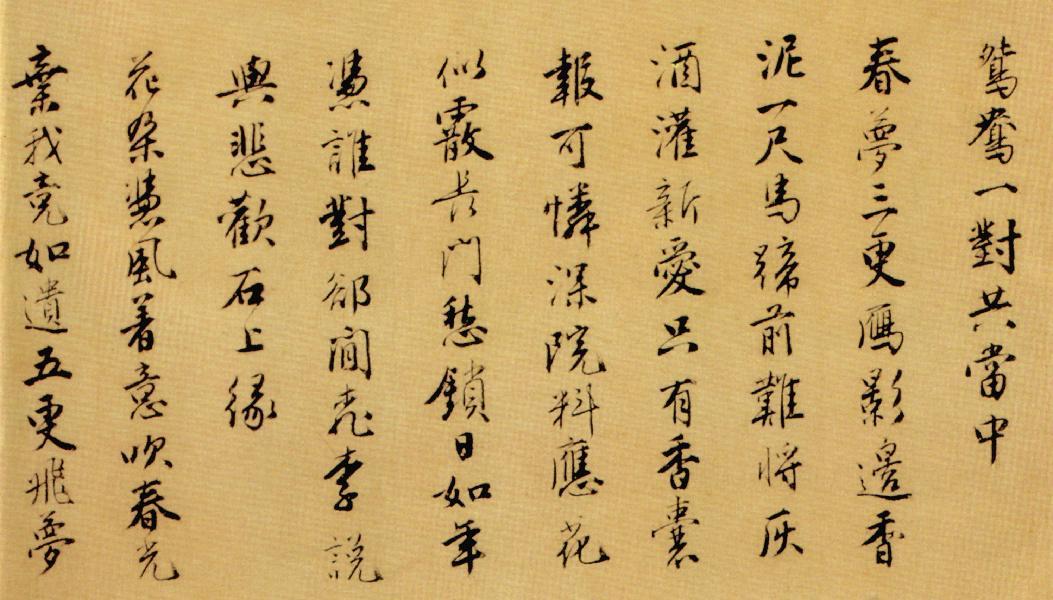 鴛鴦一對共當中
春夢三更鴈影邊香
泥一尺馬蹄前難將灰
酒灌新愛只有香囊
報可憐深院料應花
似霰長門愁鎖日如年
憑誰對却閒桃李說
與悲歡石上緣
花朵憑風着意吹春光
棄我竟如遺五更飛夢